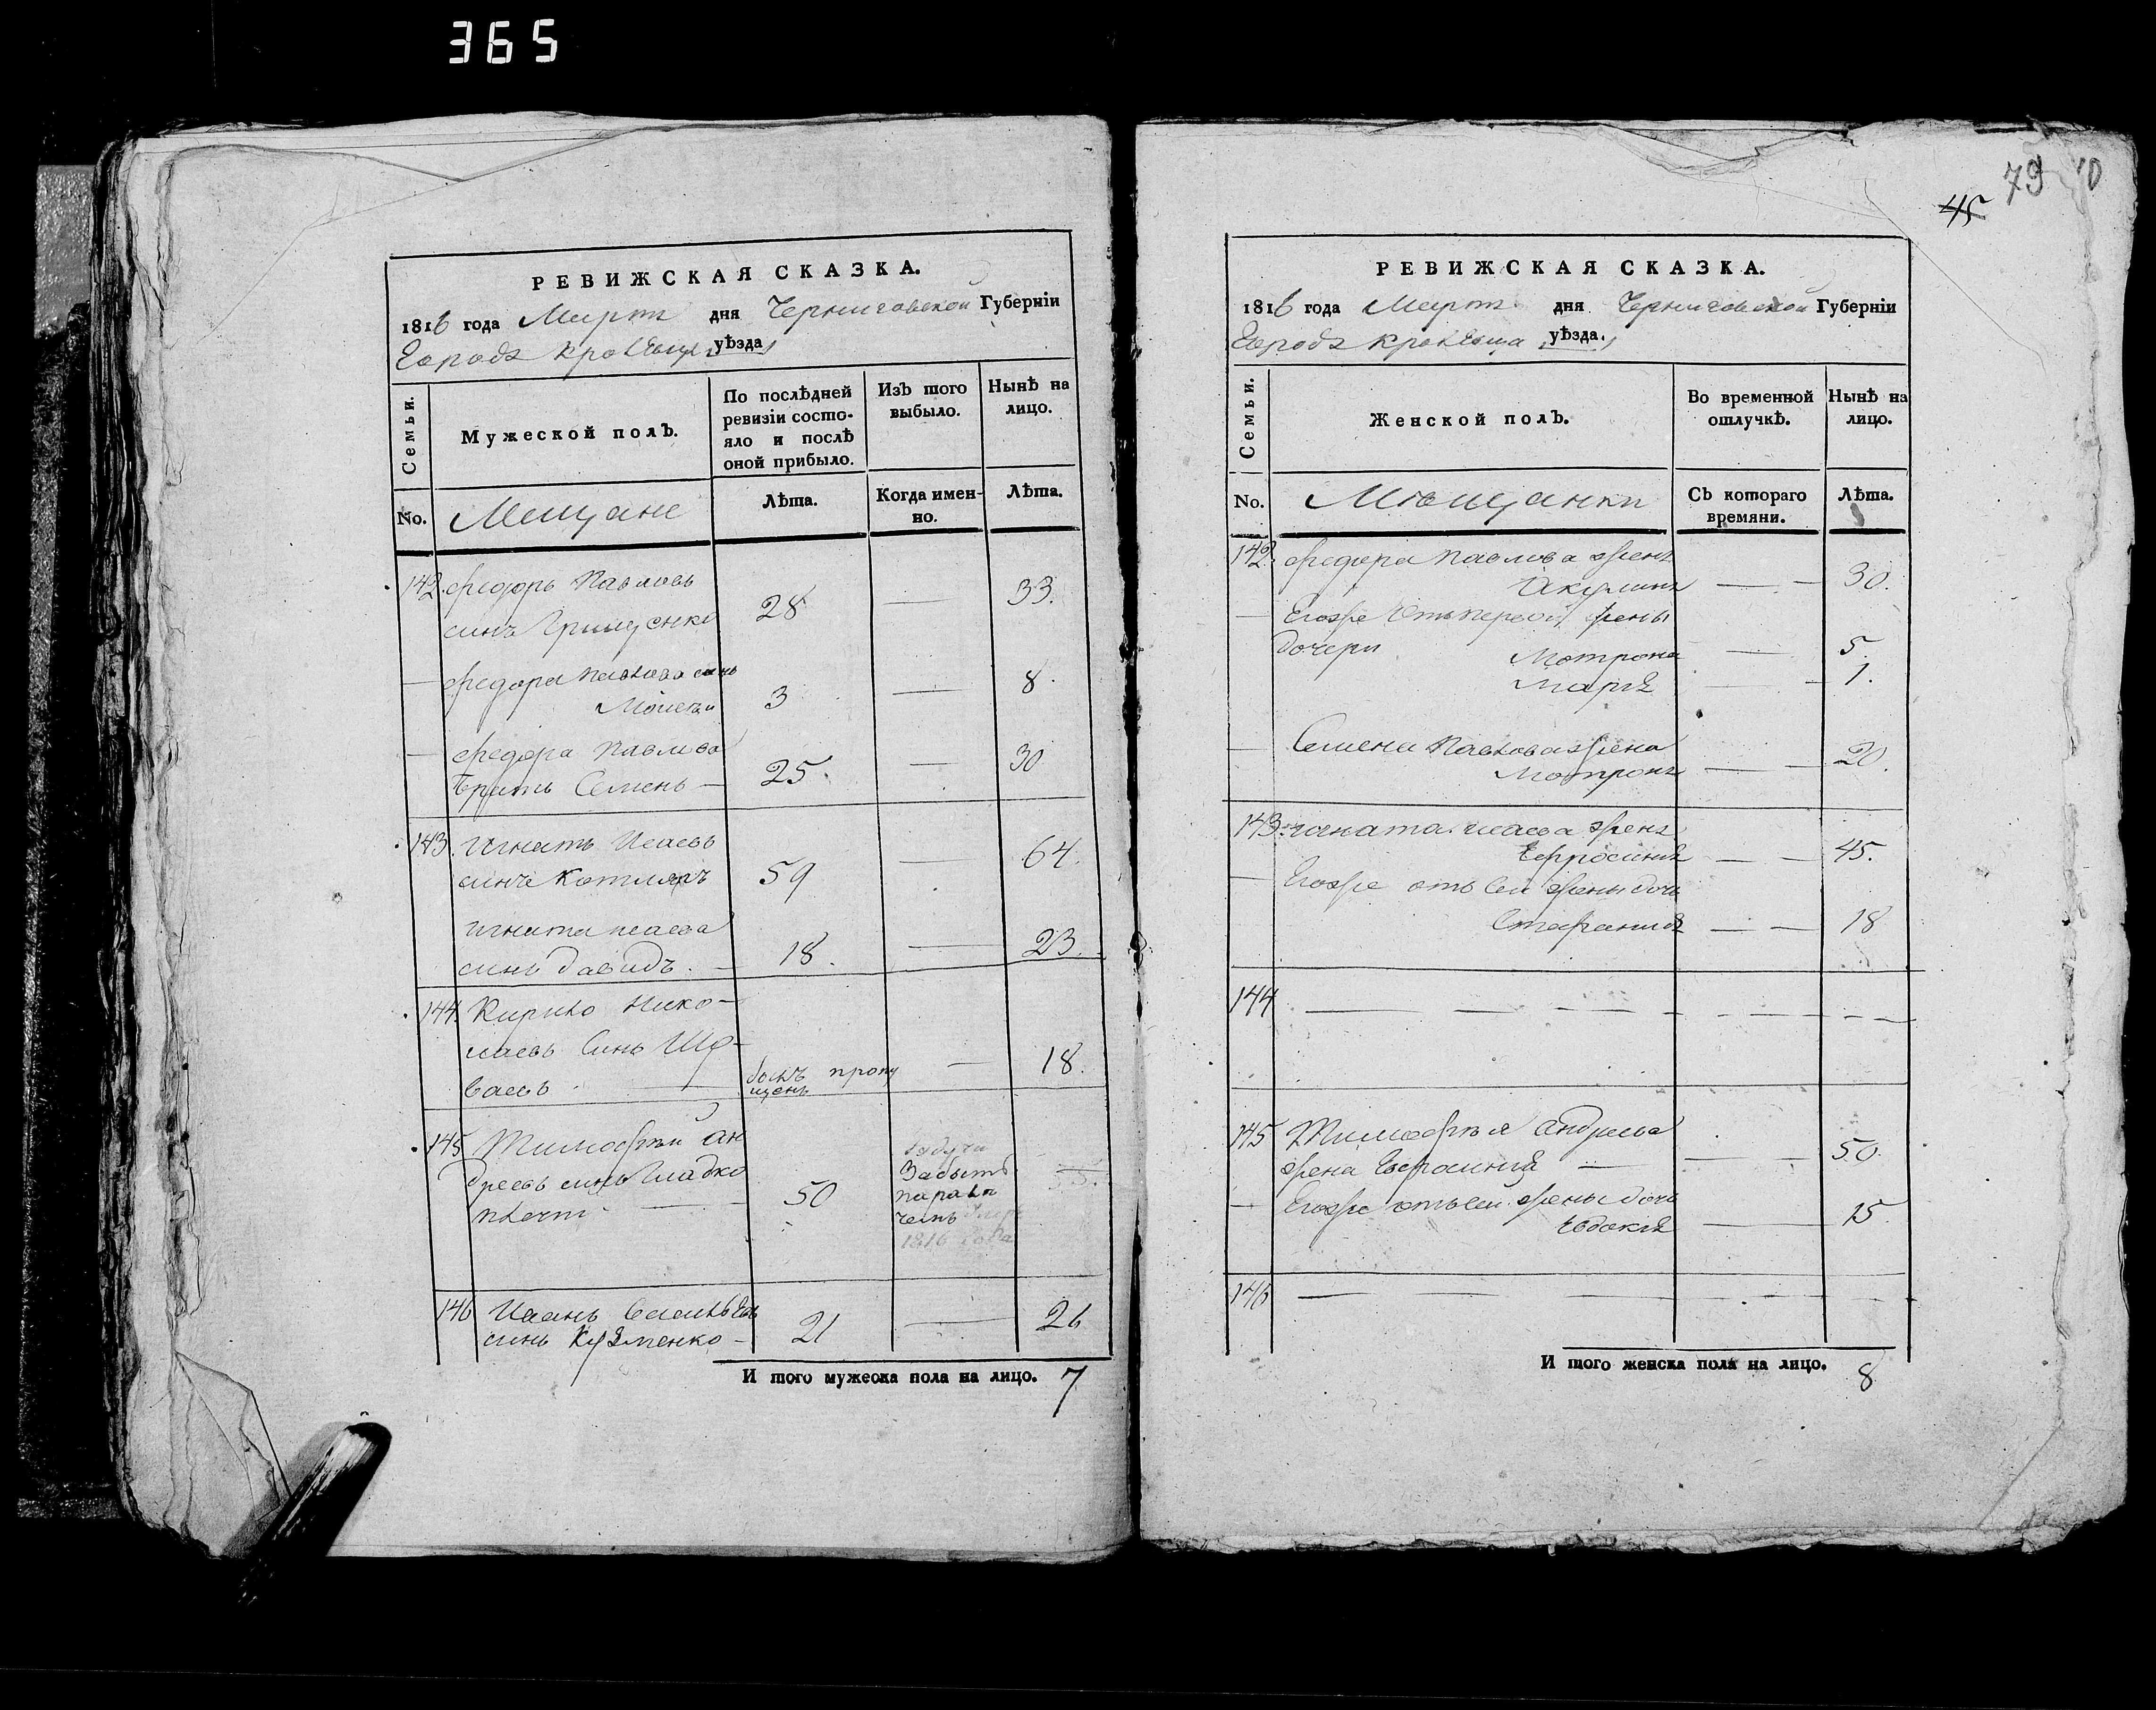 365
РЕВИЖСКАЯ СКАЗКА.
1816 года Мартъ дня Черниговской Губерніи
Города Кролевца уѣзда
Семьи.
Мужеской полъ.
По послѣдней ревизіи состояло и послѣ оной прибыло.
Изъ того выбыло.
Нынѣ на лицо.
No.
Мещане
Лѣта.
Когда именно.
Лѣта.
142. Федоръ Павловъ
синъ Грищенко 28 — 33.
— Федора Павлова синъ
Моисей 3 — 8.
— Федора Павлова
братъ Семенъ — 25. — 30
143. Игнатъ Исаевъ
синъ Котляръ 59 — 64.
Игната Исаева
синъ давидъ. — 18. — 23.
144. Кирило Нико-
лаевъ Синъ
ваевъ — былъ пропущенъ — 18.
145 Тимофѣй Ан
дреевъ синъ Гладко
— 50
1816 года
146 Иванъ Васильевъ
синъ Кузменко — 21 — 26
И того мужеска пола на лицо. 7
79
45
РЕВИЖСКАЯ СКАЗКА.
1816 года Мартъ дня Черниговской Губерніи
Города Кролевца уѣзда.
Семьи.
Женской полъ.
Во временной отлучкѣ.
Нынѣ на лицо.
No.
Мѣщанки
Съ котораго времяни.
Лѣта.
142. Федора Павлова жена
Акулина — — 30.
— Егоже отъ первой жены
дочери Мотрона — 5.
Марія — — 1.
— Семена Павлова жена
Мотрона — — 20.
143. Игната Исаева жена
Ефросинія — — 45.
— Егоже отъ сей жены дочь
Стефанида — — 18
144 — — —
145 Тимофѣя Андреева
жена Ефросинія — — — 50.
— Егоже отъ сей жены дочь
Евдокія — 15.
146 — — —
И того женска пола на лицо. 8